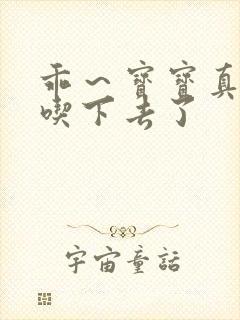 乖～寶寶真
喫下去了
宇宙童話